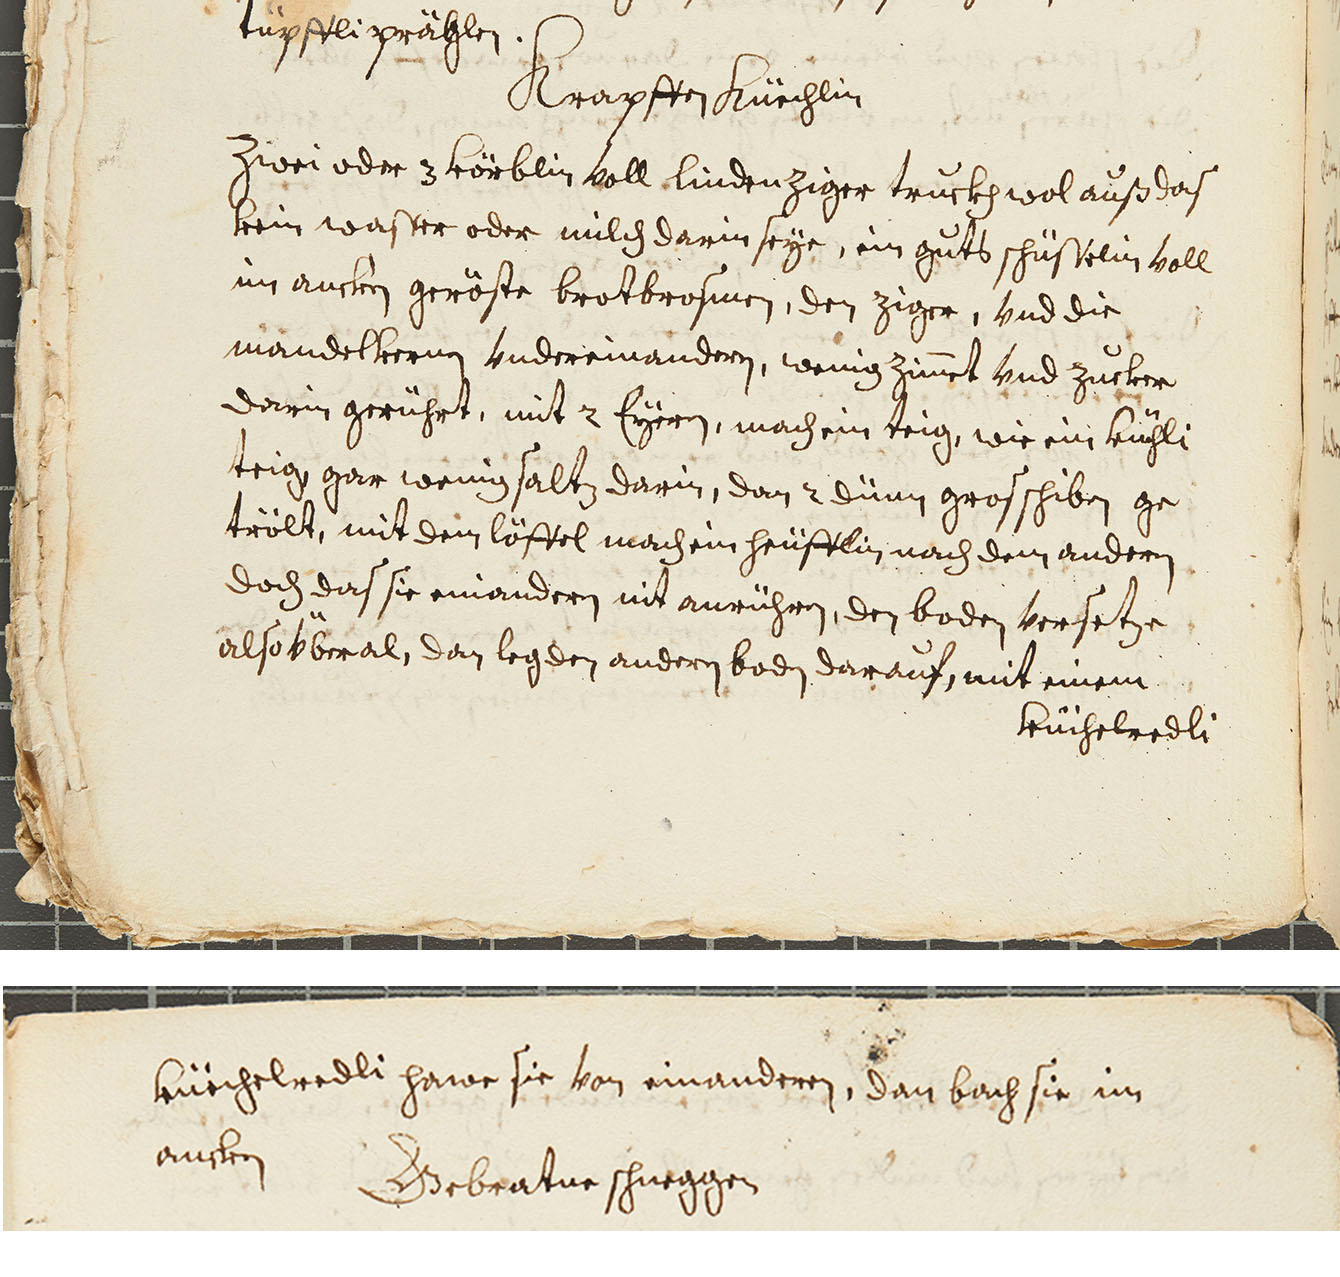 tüpffli präglen.
Krapffen Küechlin
Zwei oder 3 körblin voll linden ziger truckh wol auß das
kein wasser oder milch darin seye, ein guts schüsselin voll
im ancken geröste brotbrosmen, den ziger, vnd die
mandelkernn vndereinandern, wenig zim̄et vnd zucker
darin gerührt, mit 2 Eyern, mach ein teig, wie ein küchli
teig, gar wenig saltz darin, dan 2 dünn gros schiben ge
trölt, mit dem löffel mach ein heüfflin nach dem andern
doch das sie einandern nit anrühren, den boden versetze
also vberal, dan leg den andern boden darauf, mit einem
küchelredli
küechelredli hawe sie von einanderen, dan bach sie im
ancken
Gebratne schneggen